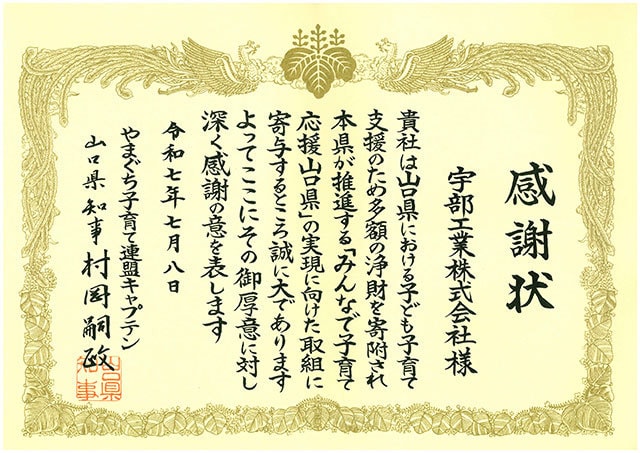 感謝状
宇部工業株式会社様
貴社は山口県における子ども子育て
支援のため多額の浄財を寄附され
本県が推進する「みんなで子育て
応援山口県」の実現に向けた取組に
寄与するところ誠に大であります
よってここにその御厚意に対し
深く感謝の意を表します
令和七年七月八日
やまぐち子育て連盟キャプテン
山口県知事 村岡嗣政
山口県
知事